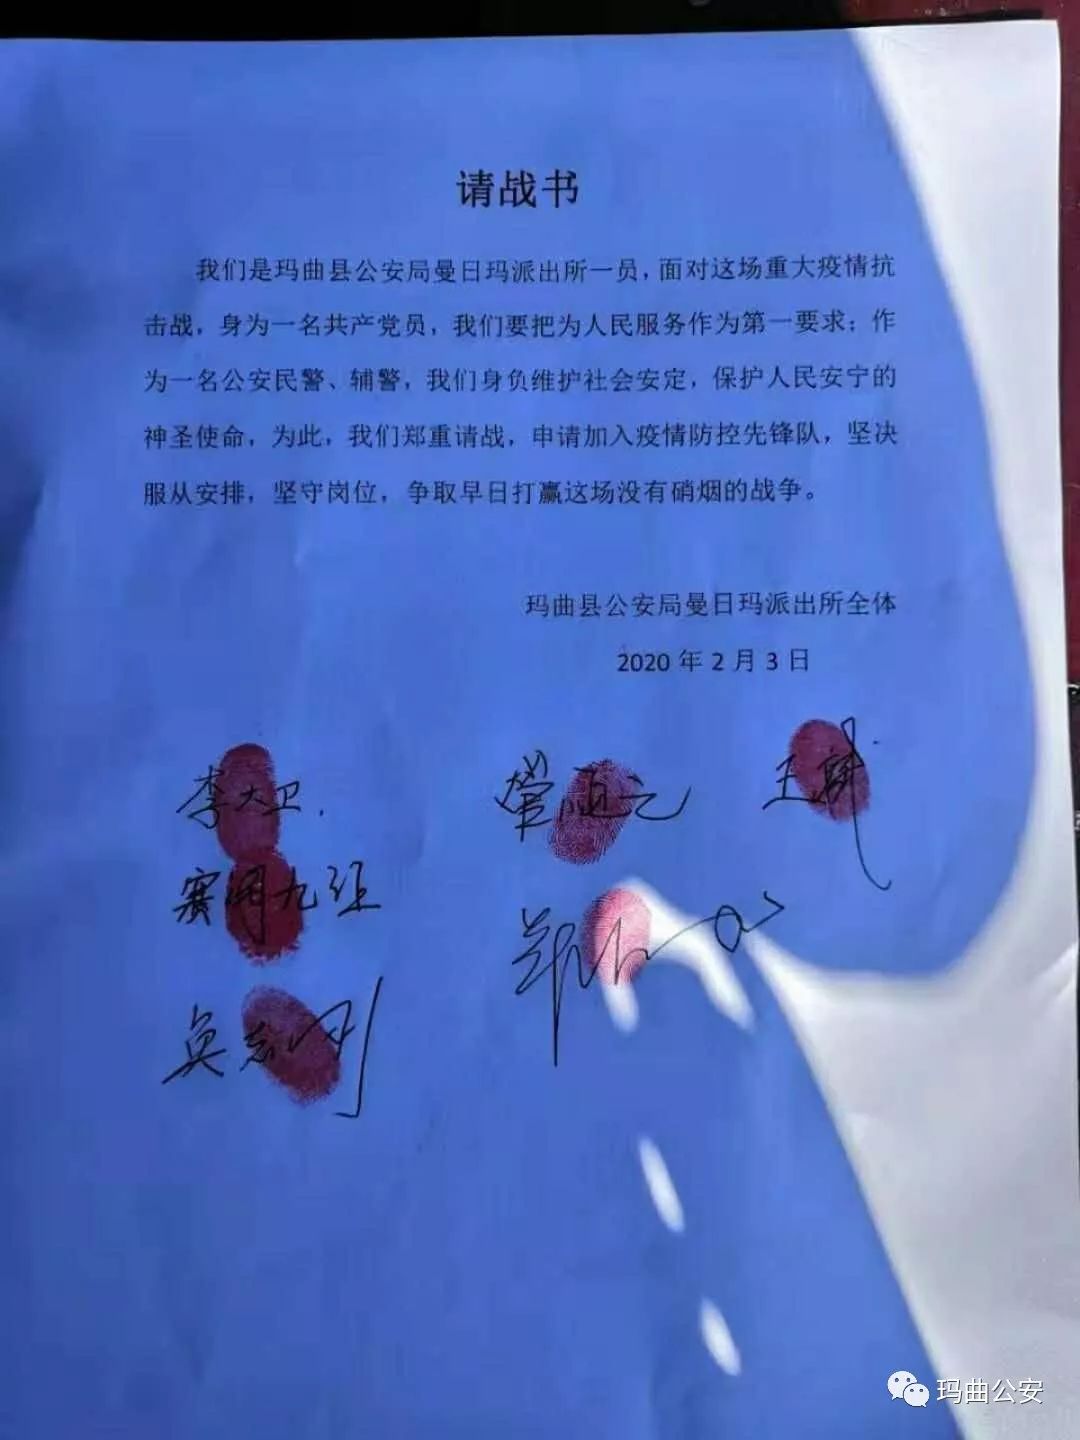 请战书
我们是玛曲县公安局曼日玛派出所一员，面对这场重大疫情抗
击战，身为一名共产党员，我们要把为人民服务作为第一要求；作
为一名公安民警、辅警，我们身负维护社会安定，保护人民安宁的
神圣使命，为此，我们郑重请战，申请加入疫情防控先锋队，坚决
服从安排，坚守岗位，争取早日打赢这场没有硝烟的战争。
玛曲县公安局曼日玛派出所全体
2020 年 2 月 3 日
李大卫
玛曲公安